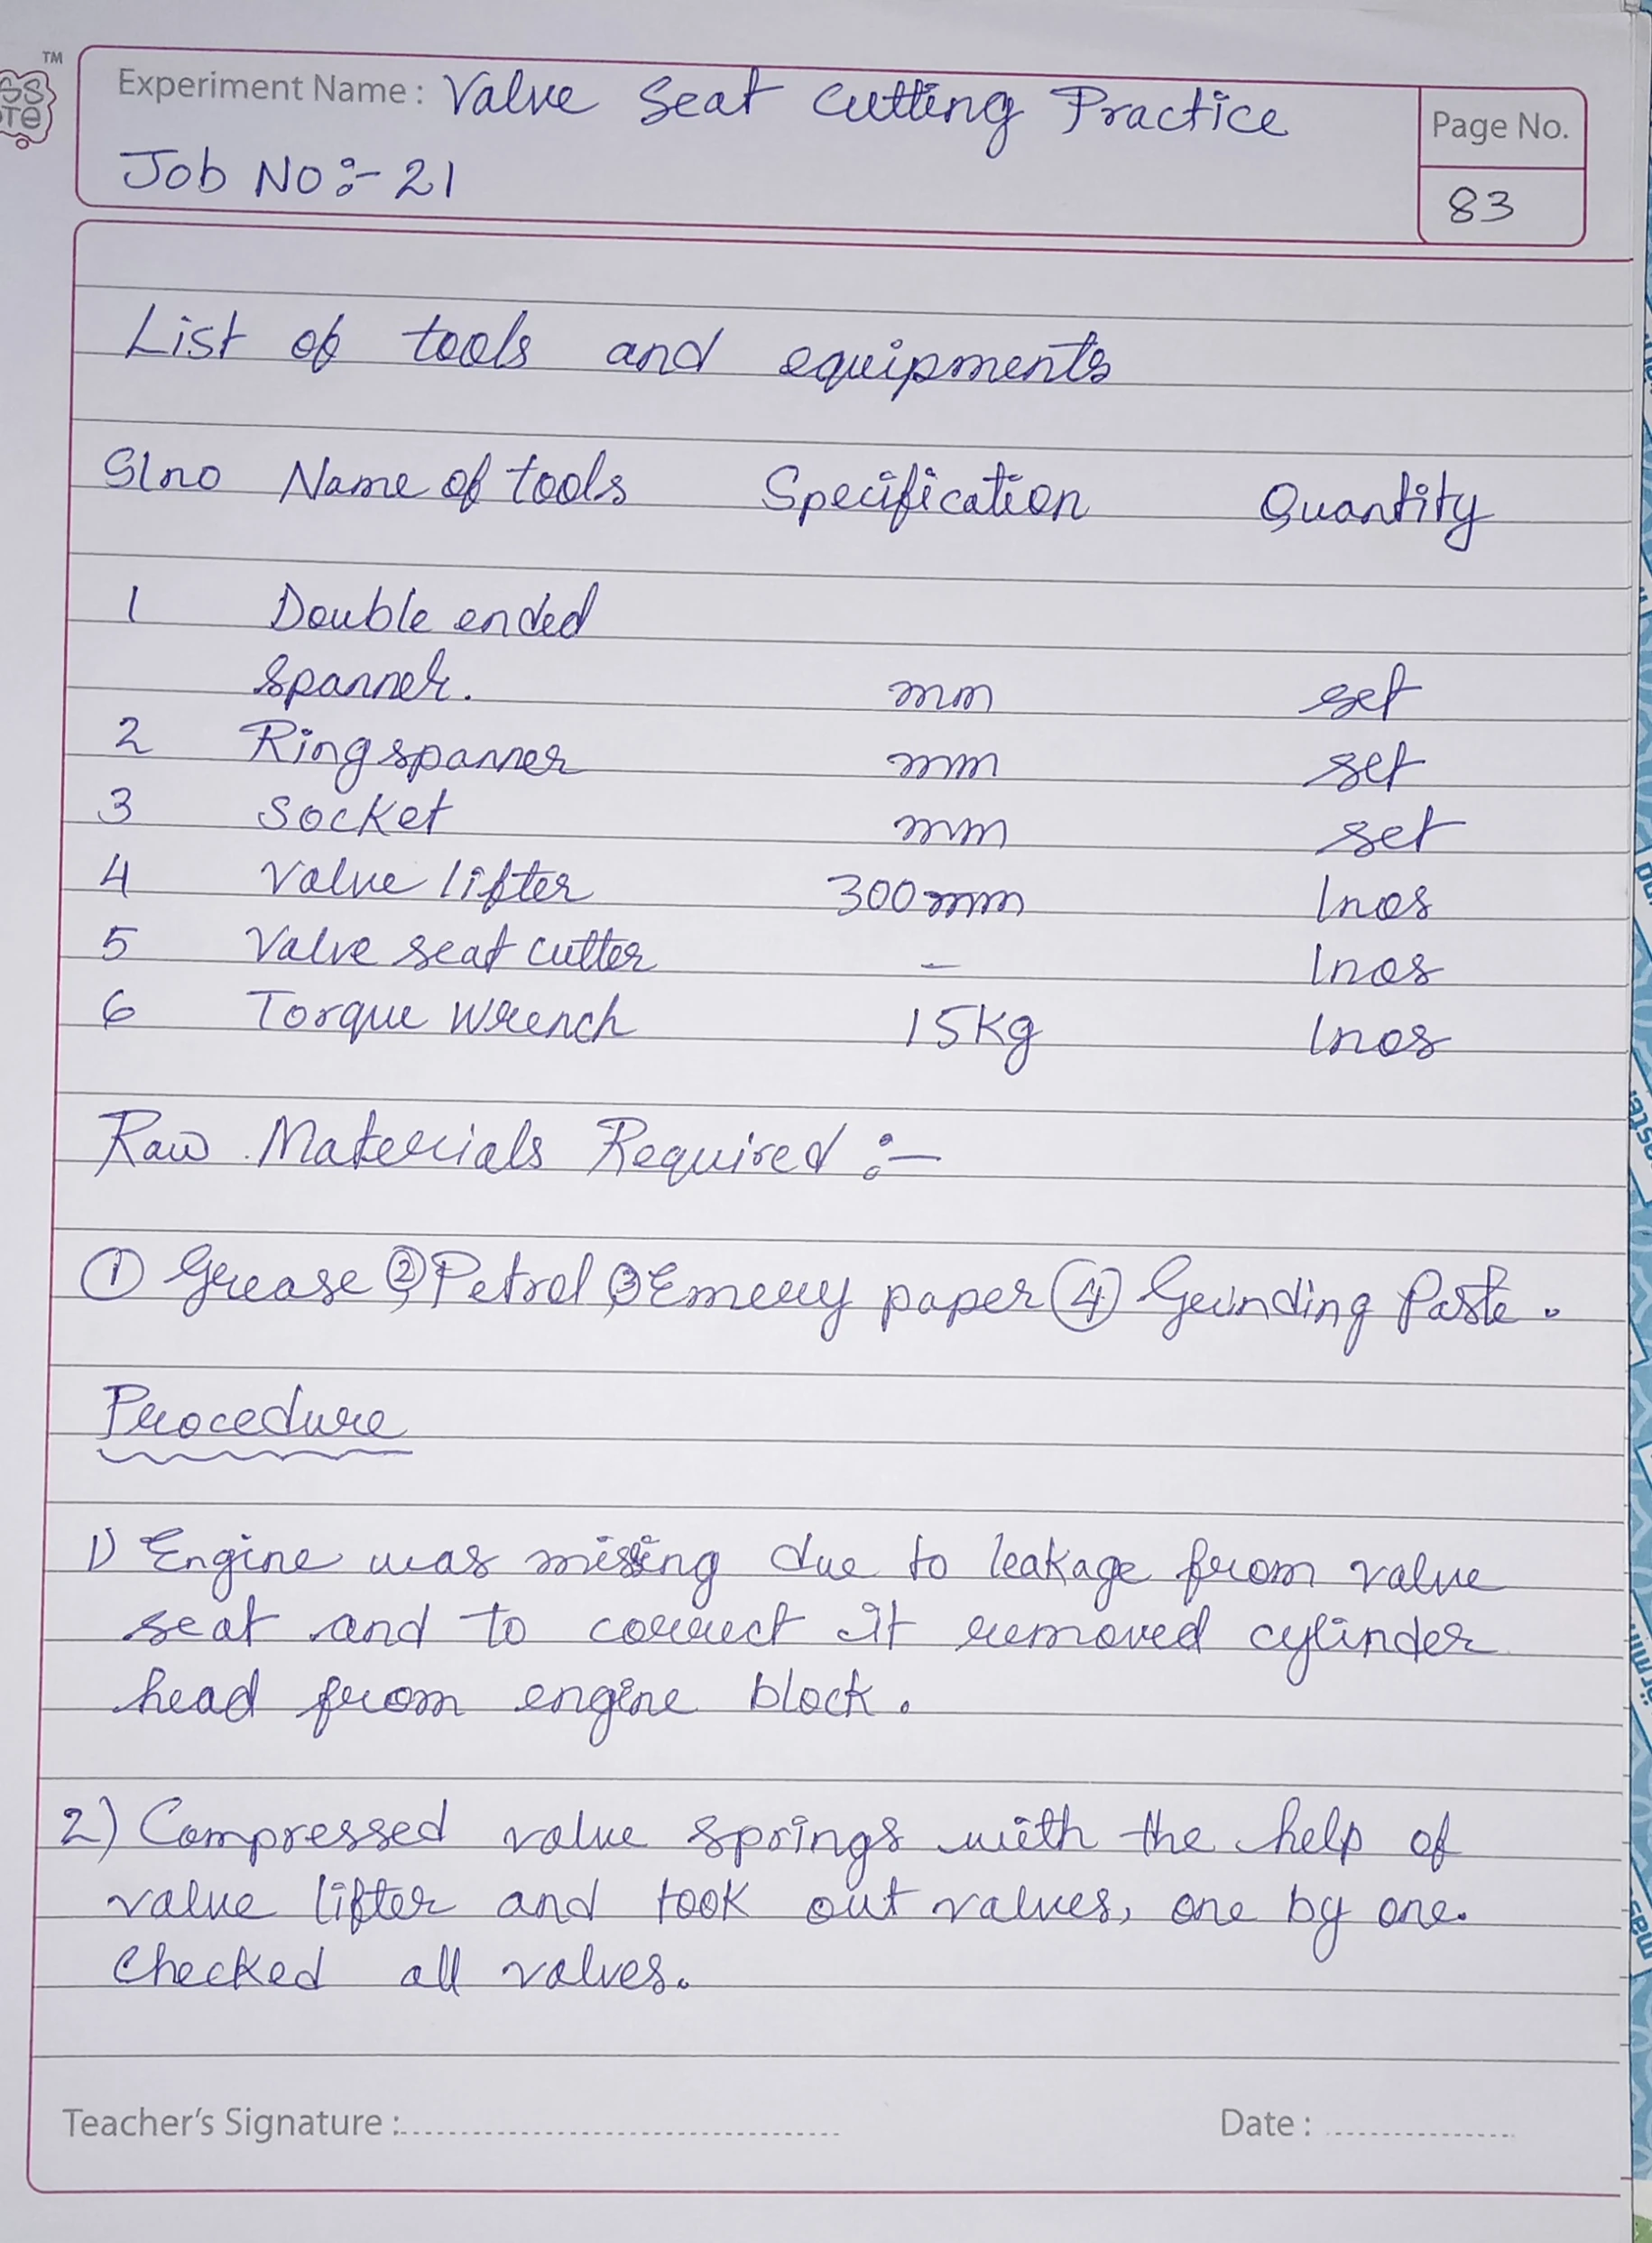 TM
Experiment Name : Valve Seat Cutting Practice
Page No.
Job No :- 21
83
List of tools and equipments
Slno Name of tools Specification Quantity
1 Double ended
spanner. mm set
2 Ring spanner mm set
3 Socket mm set
4 Valve lifter 300mm 1nos
5 Valve seat cutter - 1nos
6 Torque Wrench 15Kg 1nos
Raw Materials Required :-
① Grease ② Petrol ③ Emery paper ④ Grinding Paste.
Procedure
1) Engine was missing due to leakage from valve
seat and to correct it removed cylinder
head from engine block.
2) Compressed valve springs with the help of
valve lifter and took out valves, one by one.
Checked all valves.
Teacher's Signature :
Date :